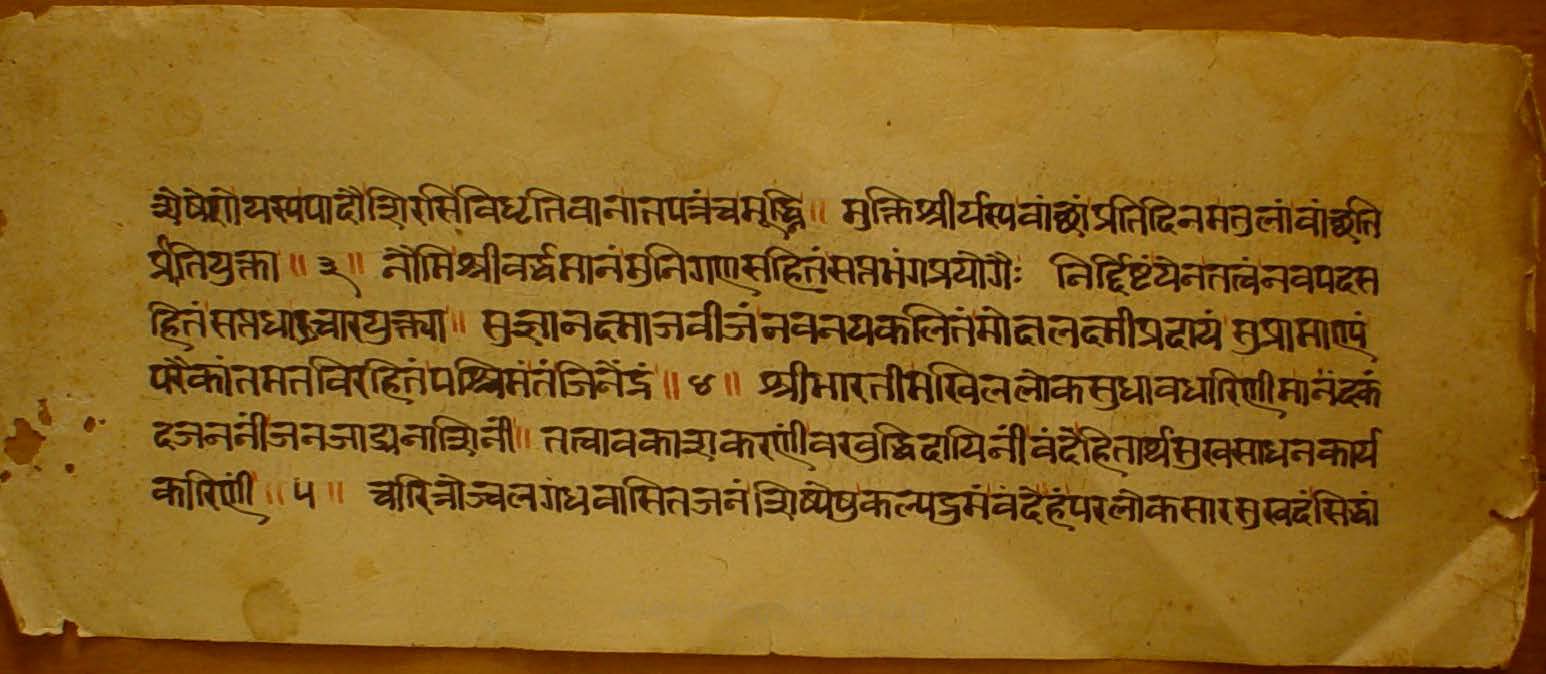 शेषेशोयस्यपादौशिरसिविधृतिवानातपत्रंचमूर्द्ध्नि॥ मुक्तिश्रीर्यस्यवांछांप्रतिदिनमतुलांवांछति
प्रीतियुक्ता॥३॥ नौमिश्रीवर्द्धमानंमुनिगणसहितंसप्तभंगप्रयोगैः निर्द्दिष्टंयेनतत्वंनवपदस
हितंसप्तधाचारयुक्त्या॥ सुज्ञानक्ष्माजबीजंनवनयकलितंमोक्षलक्ष्मीप्रदायं सुप्रामाण्यं
परैकांतमतविरहितंपश्चिमंतंजिनेंद्रं॥४॥ श्रीभारतीमखिललोकसुधावधारिणीमानंदकं
दजननींजनजाड्यनाशिनीं॥ तत्वावकाशकरणींवरबुद्धिदायिनीं वंदेहितार्थसुखसाधनकार्य
कारिणीं॥५॥ चारित्रोज्वलगंधवासितजनंशिष्येषुकल्पद्रुमंवंदेहंपरलोकसारसुखदंसिद्धां